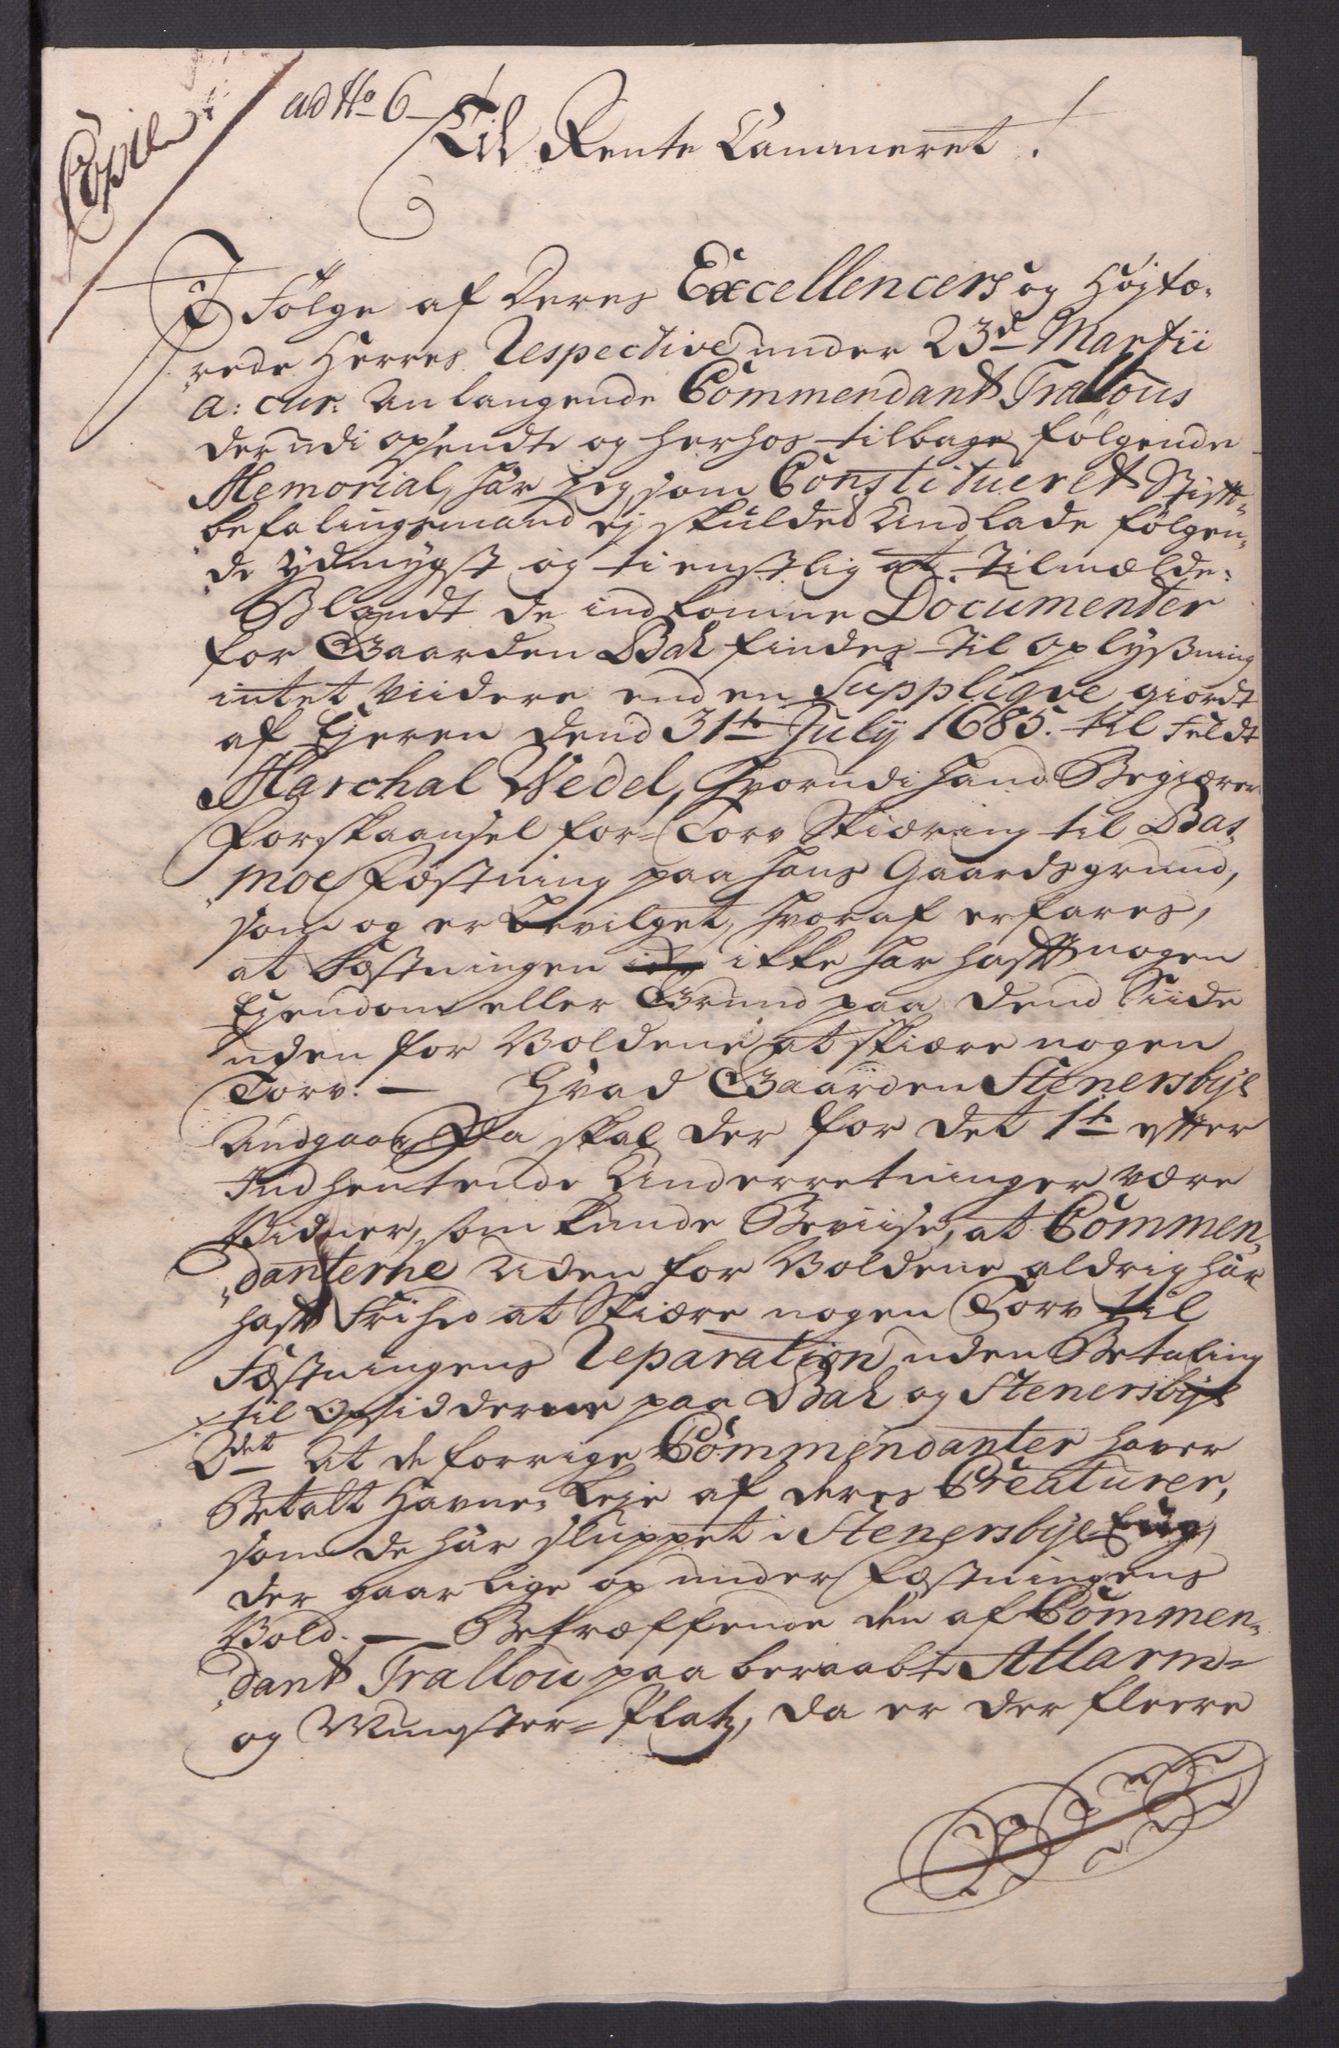 Copie
ad No 6
Til Rente Cammeret!
I Følge af Deres Excellencers og Højtæ-
rede Herres Respective under 23d Martii
a: cur: Anlangende Commendant Trallous
derudi opsendte og herhos tilbage følgende
Memorial, har jeg som Constitueret Stift-
befalingsmand ej skulded Undlade følgen-
de ydmygst og tienstlig at tilmælde:
Blandt de indkomne Documenter
for Gaarden Bak findes til oplysning
intet viidere end en Supplique giordt
af Ejeren dend 31te July 1685. til Feldt
Marchal Wedel, hvorudi hand Begiærer
forskaansel for Torv Skiæring til Bas-
moe Fæstning paa hans Gaards grund,
som og er bevilget, hvoraf erfares,
at Fæstningen ikke har hafft nogen
Ejendom eller Grund paa dend Siide
uden for Voldene at skiære nogen
Torv. — Hvad Gaarden Stenersbye
Andgaar, Da skal der for det 1te efter
Indhentende Underretninger være
Vidner, som kunde Beviise, at Commen-
danterne uden for Voldene aldrig har
hafft Frihed at Skiære nogen Torv til
Fæstningens Reparation uden Betaling
til Opsidderne paa Bak og Stenersbye
2det At de forrige Commendanter haver
Betalt Havne-Leje af deres Creaturer,
som de har sluppet i Stenersbye Eng,
der gaar lige op under Fæstningens
Vold. — Betræffende den af Commen-
dant Trallou paa beraabte Allarm-
og Munster-Platz, da er der fleere